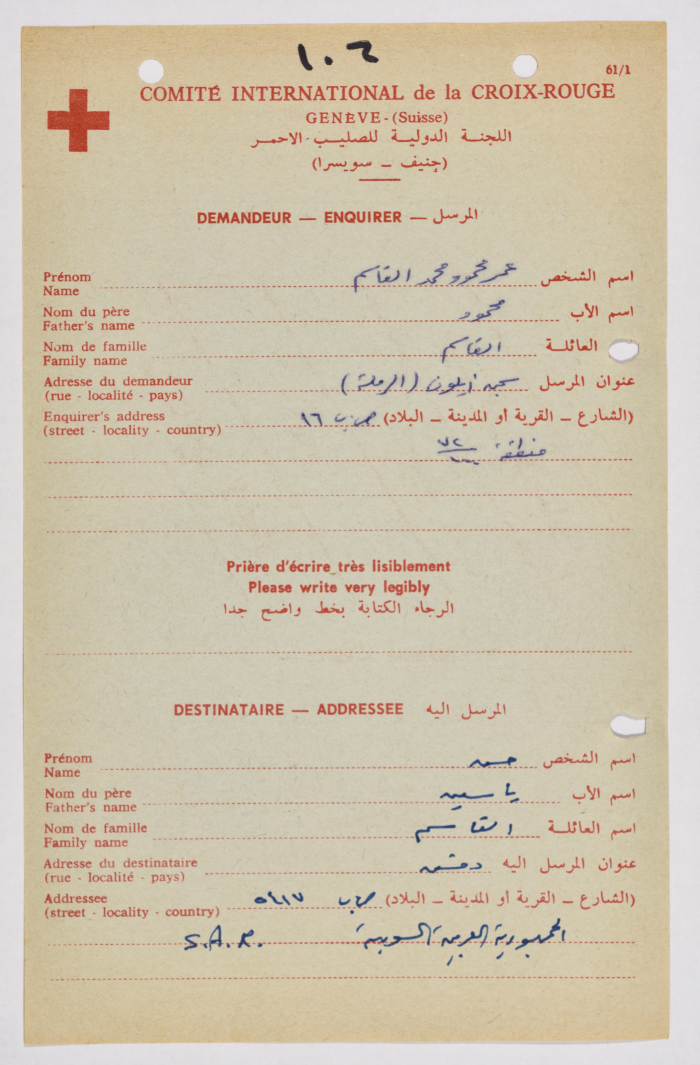 ١٠٢
61/1
COMITÉ INTERNATIONAL de la CROIX-ROUGE
GENÈVE - (Suisse)
اللجنة الدولية للصليب الاحمر
(جنيف ــ سويسرا)
DEMANDEUR — ENQUIRER — المرسل
Prénom
Name
اسم الشخص عمر محمود محمد القاسم
Nom du père
Father's name
اسم الأب محمود
Nom de famille
Family name
العائلة القاسم
Adresse du demandeur
(rue - localité - pays)
عنوان المرسل سجن أيلون (الرملة)
Enquirer's address
(street - locality - country)
(الشارع ــ القرية أو المدينة ــ البلاد) ص ب ١٦
منطقة ٧٢/١٠٠
Prière d'écrire très lisiblement
Please write very legibly
الرجاء الكتابة بخط واضح جدا
DESTINATAIRE — ADDRESSEE المرسل اليه
Prénom
Name
اسم الشخص حسن
Nom du père
Father's name
اسم الأب ياسين
Nom de famille
Family name
اسم العائلة القاسم
Adresse du destinataire
(rue - localité - pays)
عنوان المرسل اليه دمشق
Addressee
(street - locality - country)
(الشارع ــ القرية أو المدينة ــ البلاد) ص ب ٥٤١٧
الجمهورية العربية السورية S.A.R.